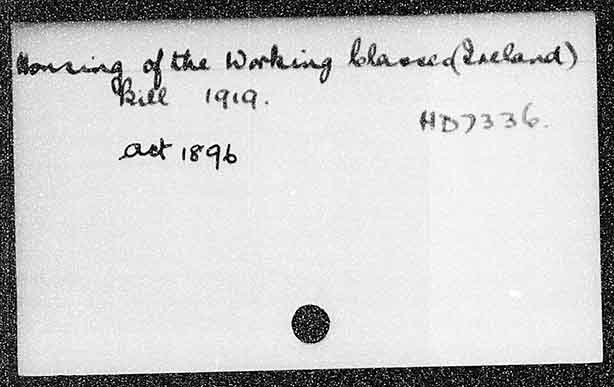 Housing of the Working Classes (Ireland)
Bill 1919.
HD7336.
Act 1896